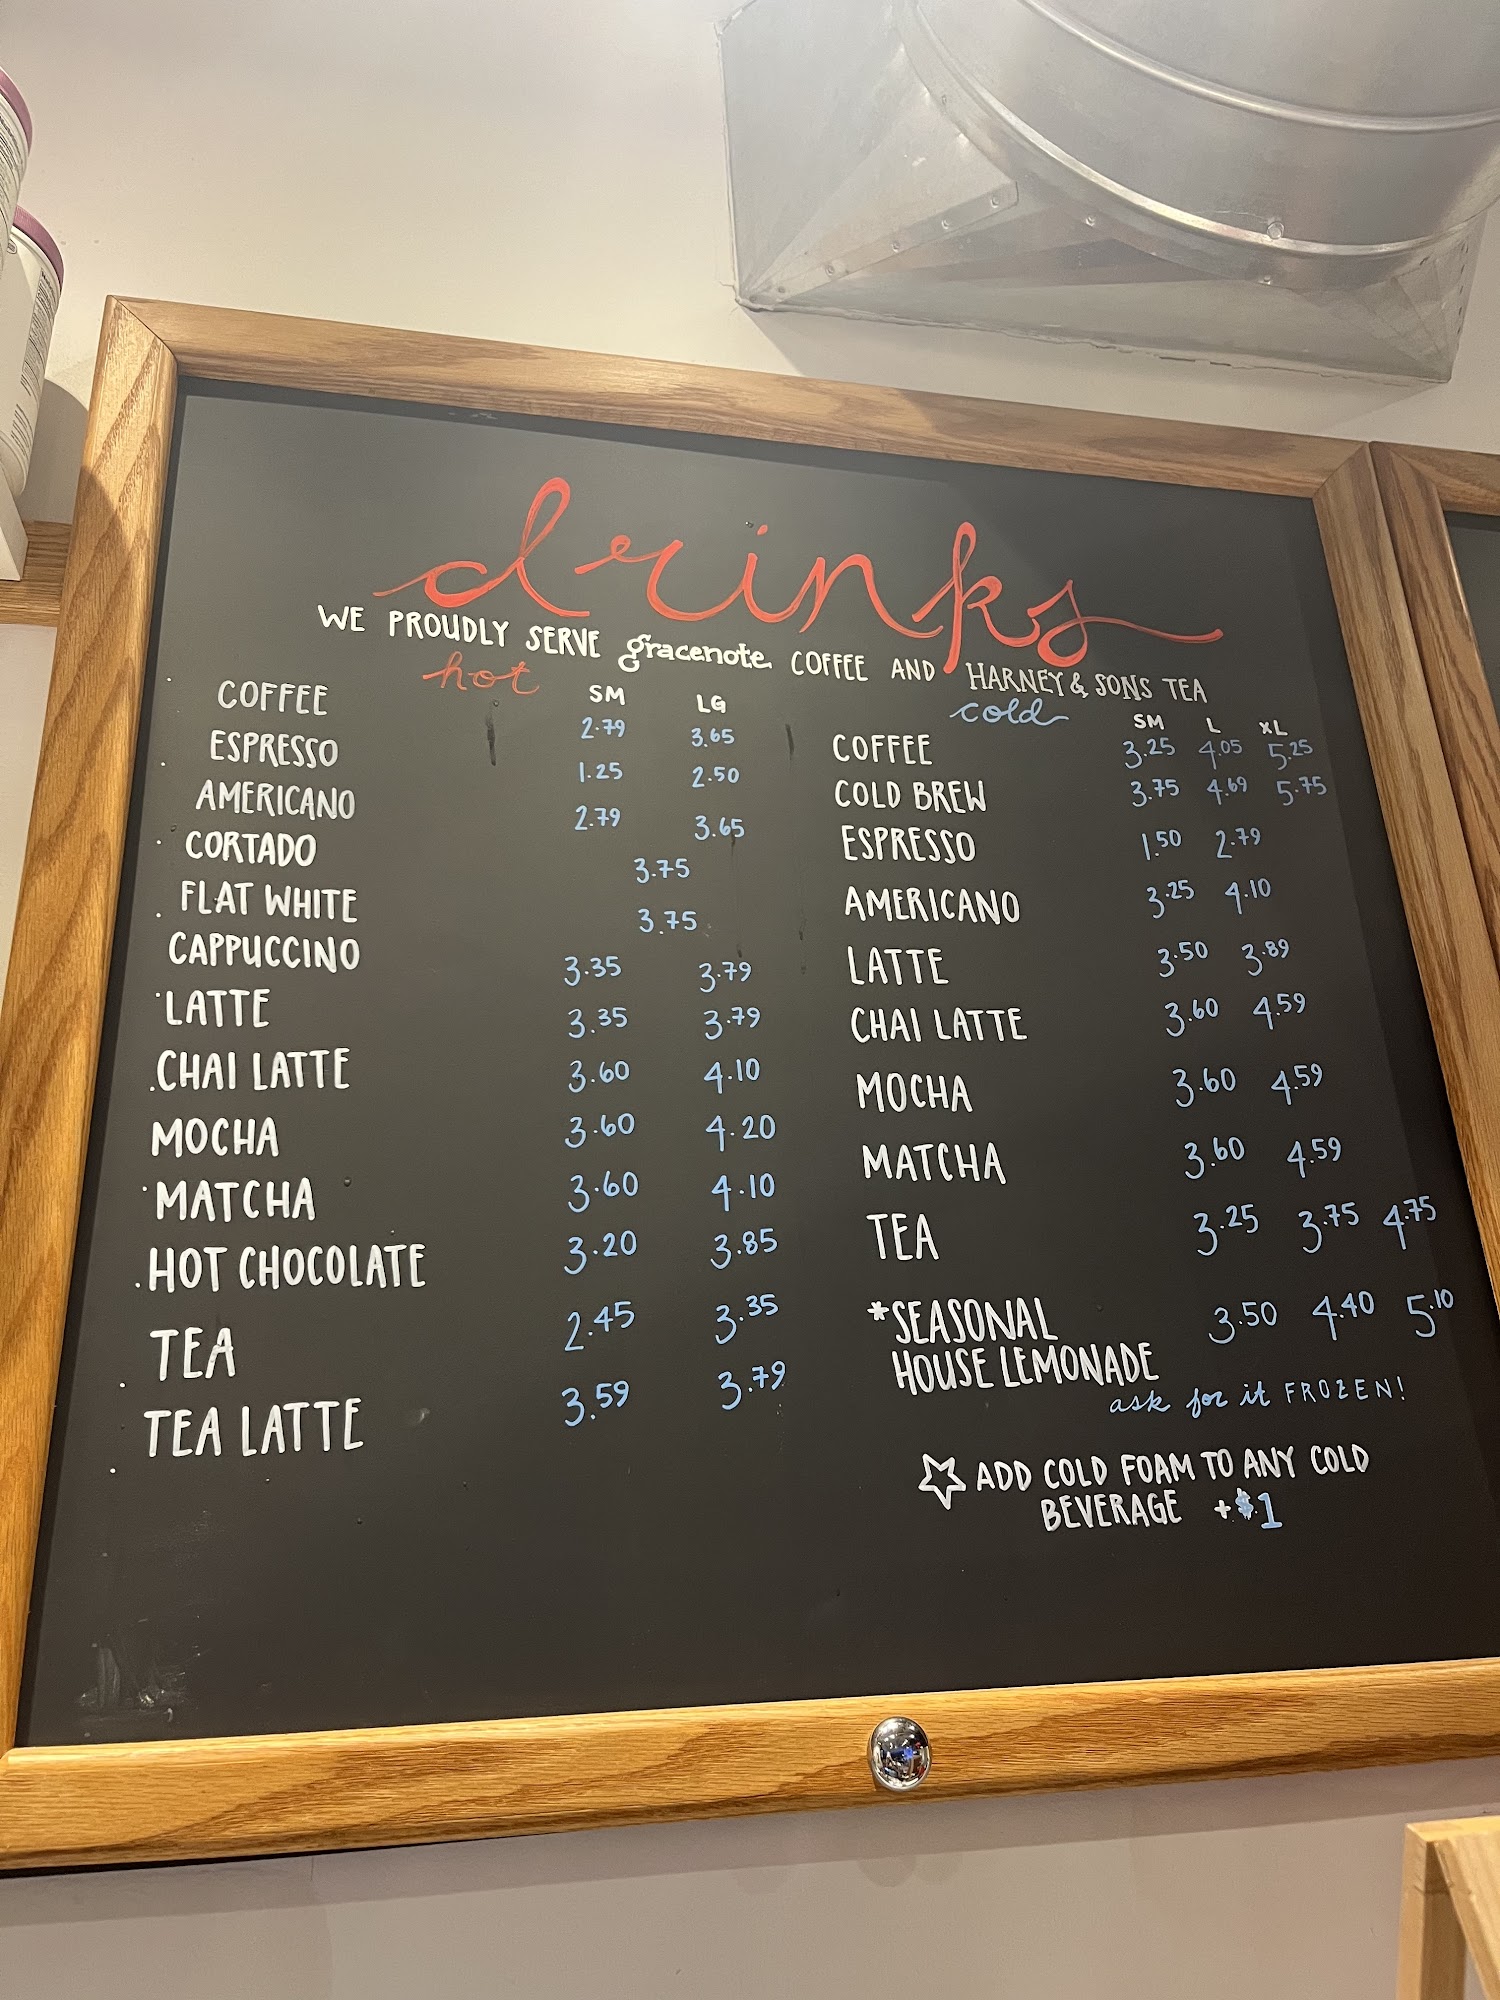 drinks
WE PROUDLY SERVE gracenote COFFEE AND HARNEY & SONS TEA
hot SM LG
COFFEE 2.79 3.65
ESPRESSO 1.25 2.50
AMERICANO 2.79 3.65
CORTADO 3.75
FLAT WHITE 3.75
CAPPUCCINO 3.35 3.79
LATTE 3.35 3.79
CHAI LATTE 3.60 4.10
MOCHA 3.60 4.20
MATCHA 3.60 4.10
HOT CHOCOLATE 3.20 3.85
TEA 2.45 3.35
TEA LATTE 3.59 3.79
cold SM L XL
COFFEE 3.25 4.05 5.25
COLD BREW 3.75 4.69 5.75
ESPRESSO 1.50 2.79
AMERICANO 3.25 4.10
LATTE 3.50 3.89
CHAI LATTE 3.60 4.59
MOCHA 3.60 4.59
MATCHA 3.60 4.59
TEA 3.25 3.75 4.75
*SEASONAL 3.50 4.40 5.10
HOUSE LEMONADE
ask for it FROZEN!
ADD COLD FOAM TO ANY COLD
BEVERAGE +$1